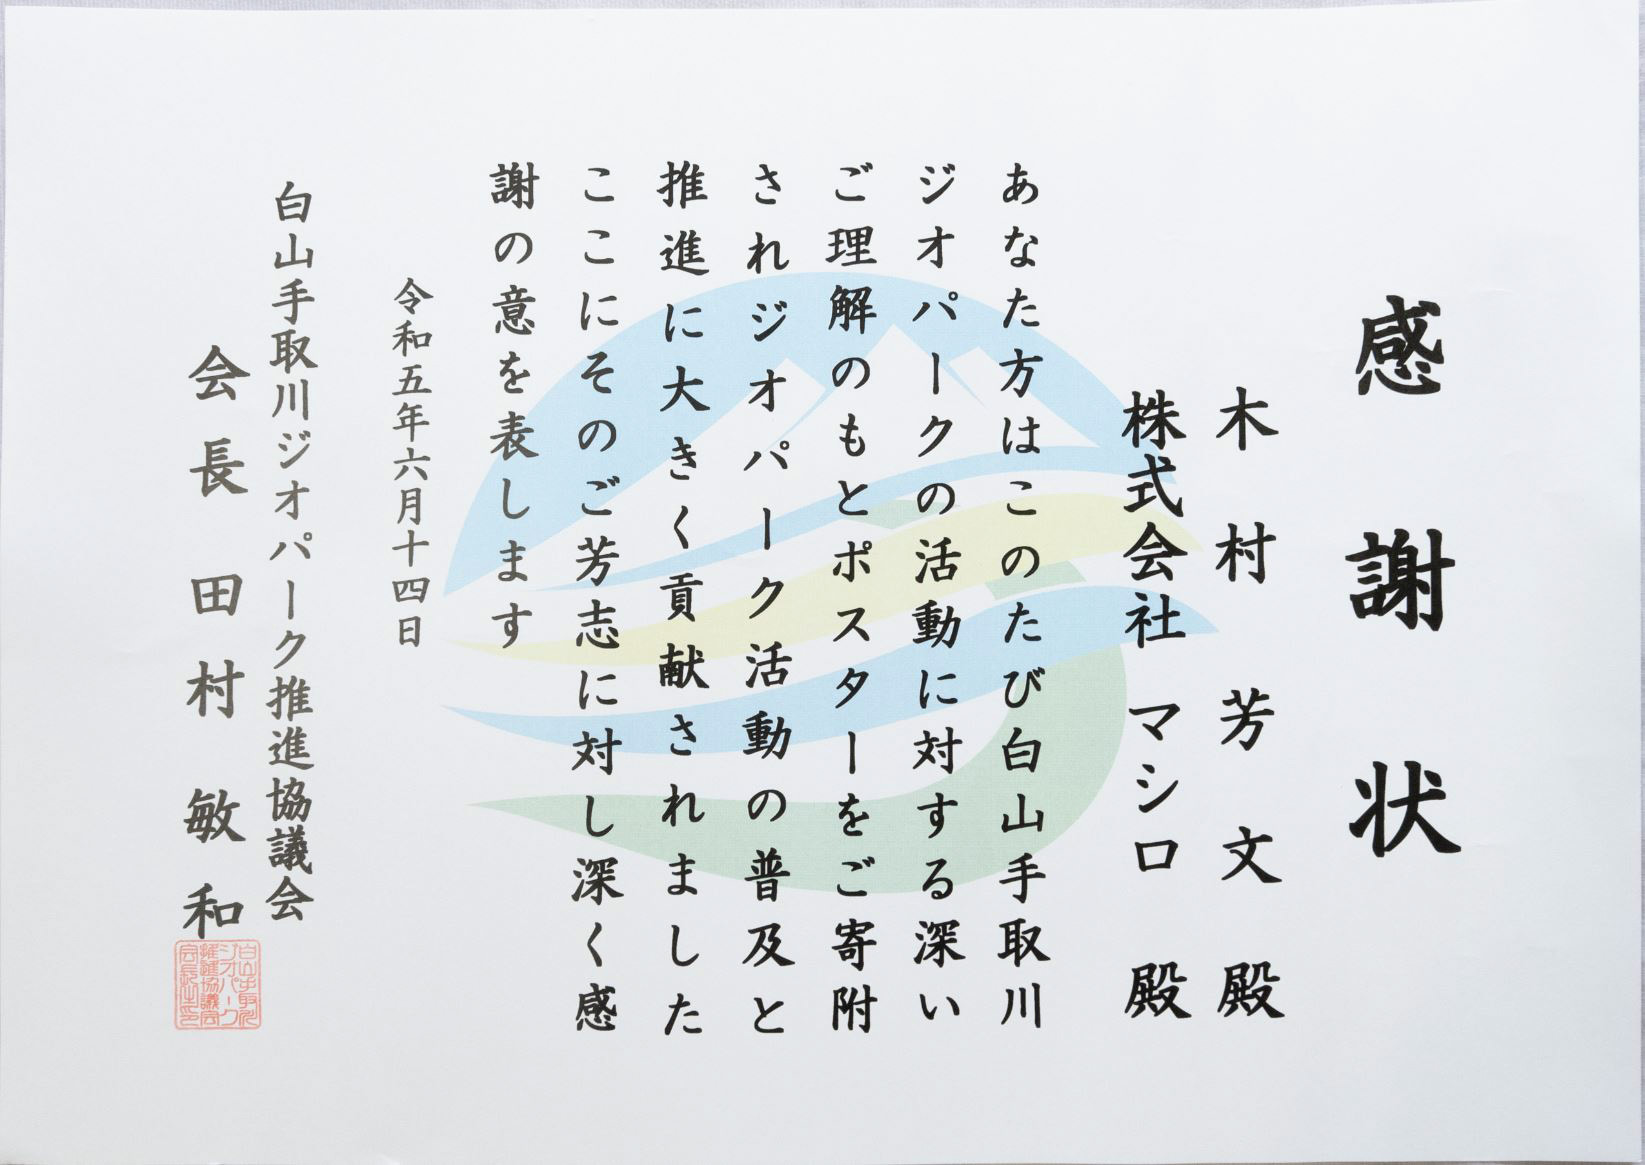 感謝状
木村芳文殿
株式会社 マシロ 殿
あなた方はこのたび白山手取川
ジオパークの活動に対する深い
ご理解のもとポスターをご寄附
されジオパーク活動の普及と
推進に大きく貢献されました
ここにそのご芳志に対し深く感
謝の意を表します
令和五年六月十四日
白山手取川ジオパーク推進協議会
会長 田村敏和
白山手取川
ジオパーク
推進協議会
会長之印